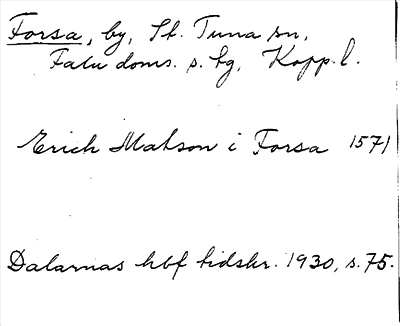 Forsa, by, St. Tuna sn,
Falu doms. s. hg, Kopp. l.
Erich Matson i Forsa 1571
Dalarnas hbf tidskr. 1930, s. 75.